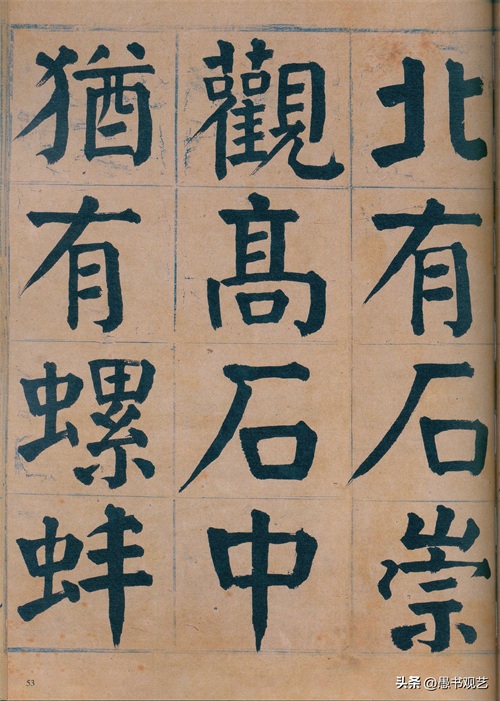 北有石崇
觀高石中
猶有螺蚌
53
头条 @愚书观艺